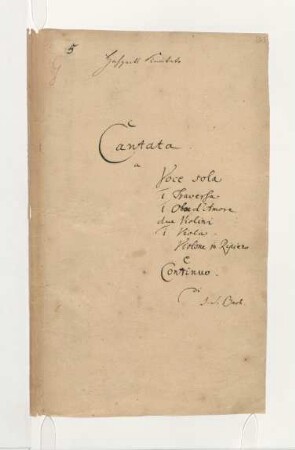 5
Cantata
a
Voce sola
1 Traversa
1 Oboe d'Amore
due Violini
1 Viola
Violone in Ripieno
e
Continuo.
di